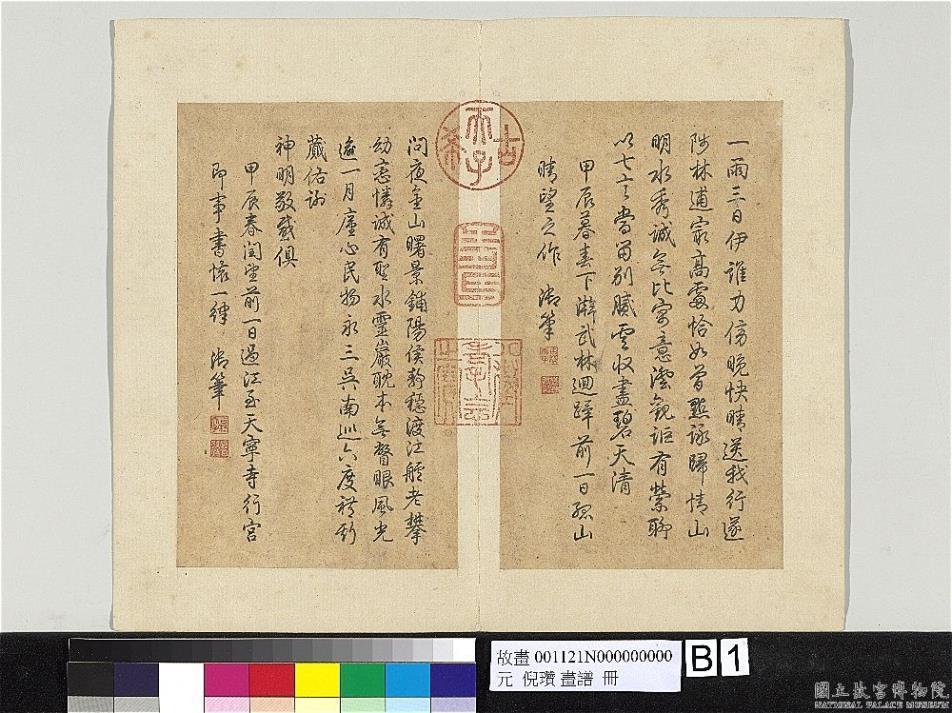 一雨三日伊誰力傍晚快晴送我行遂
陟林逋家高處恰如曾點詠歸情山
明水秀誠無比寓意澄觀詎有縈聊
以七言當留別膩雲收盡碧天清
甲辰暮春下澣武林迴蹕前一日孤山
晴望之作 御筆
問夜金山曙景鋪陽侯靜穩渡江艫老攀
幼戀憐誠有聖水靈巖耽本無瞥眼風光
遙一月廑心民物永三吳南巡六度
蕆佑謝
神明敬感俱
甲辰春閏望前一日過江至天寧寺行宮
即事書懷一律 御筆
古希天子
故畫 001121N000000000
元 倪瓚 畫譜 冊
B 1
國立故宮博物院
NATIONAL PALACE MUSEUM